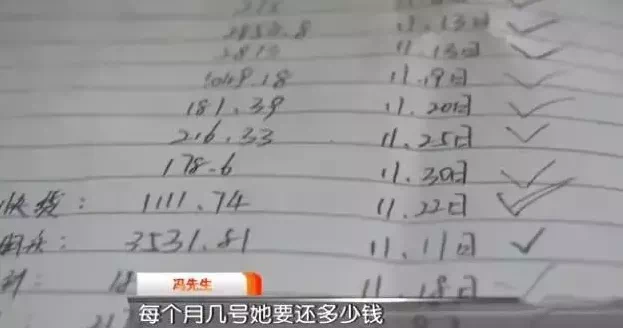 11.13日
11.13日
1049.18 11.19日
181.39 11.20日
216.33 11.25日
178.6 11.30日
快贷: 1111.74 11.22日
3531.81 11.11日
11.18日
冯先生
每个月几号她要还多少钱